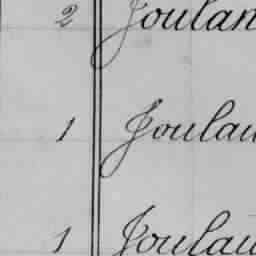 2 Joulan
1 Joulau
1 Joulau